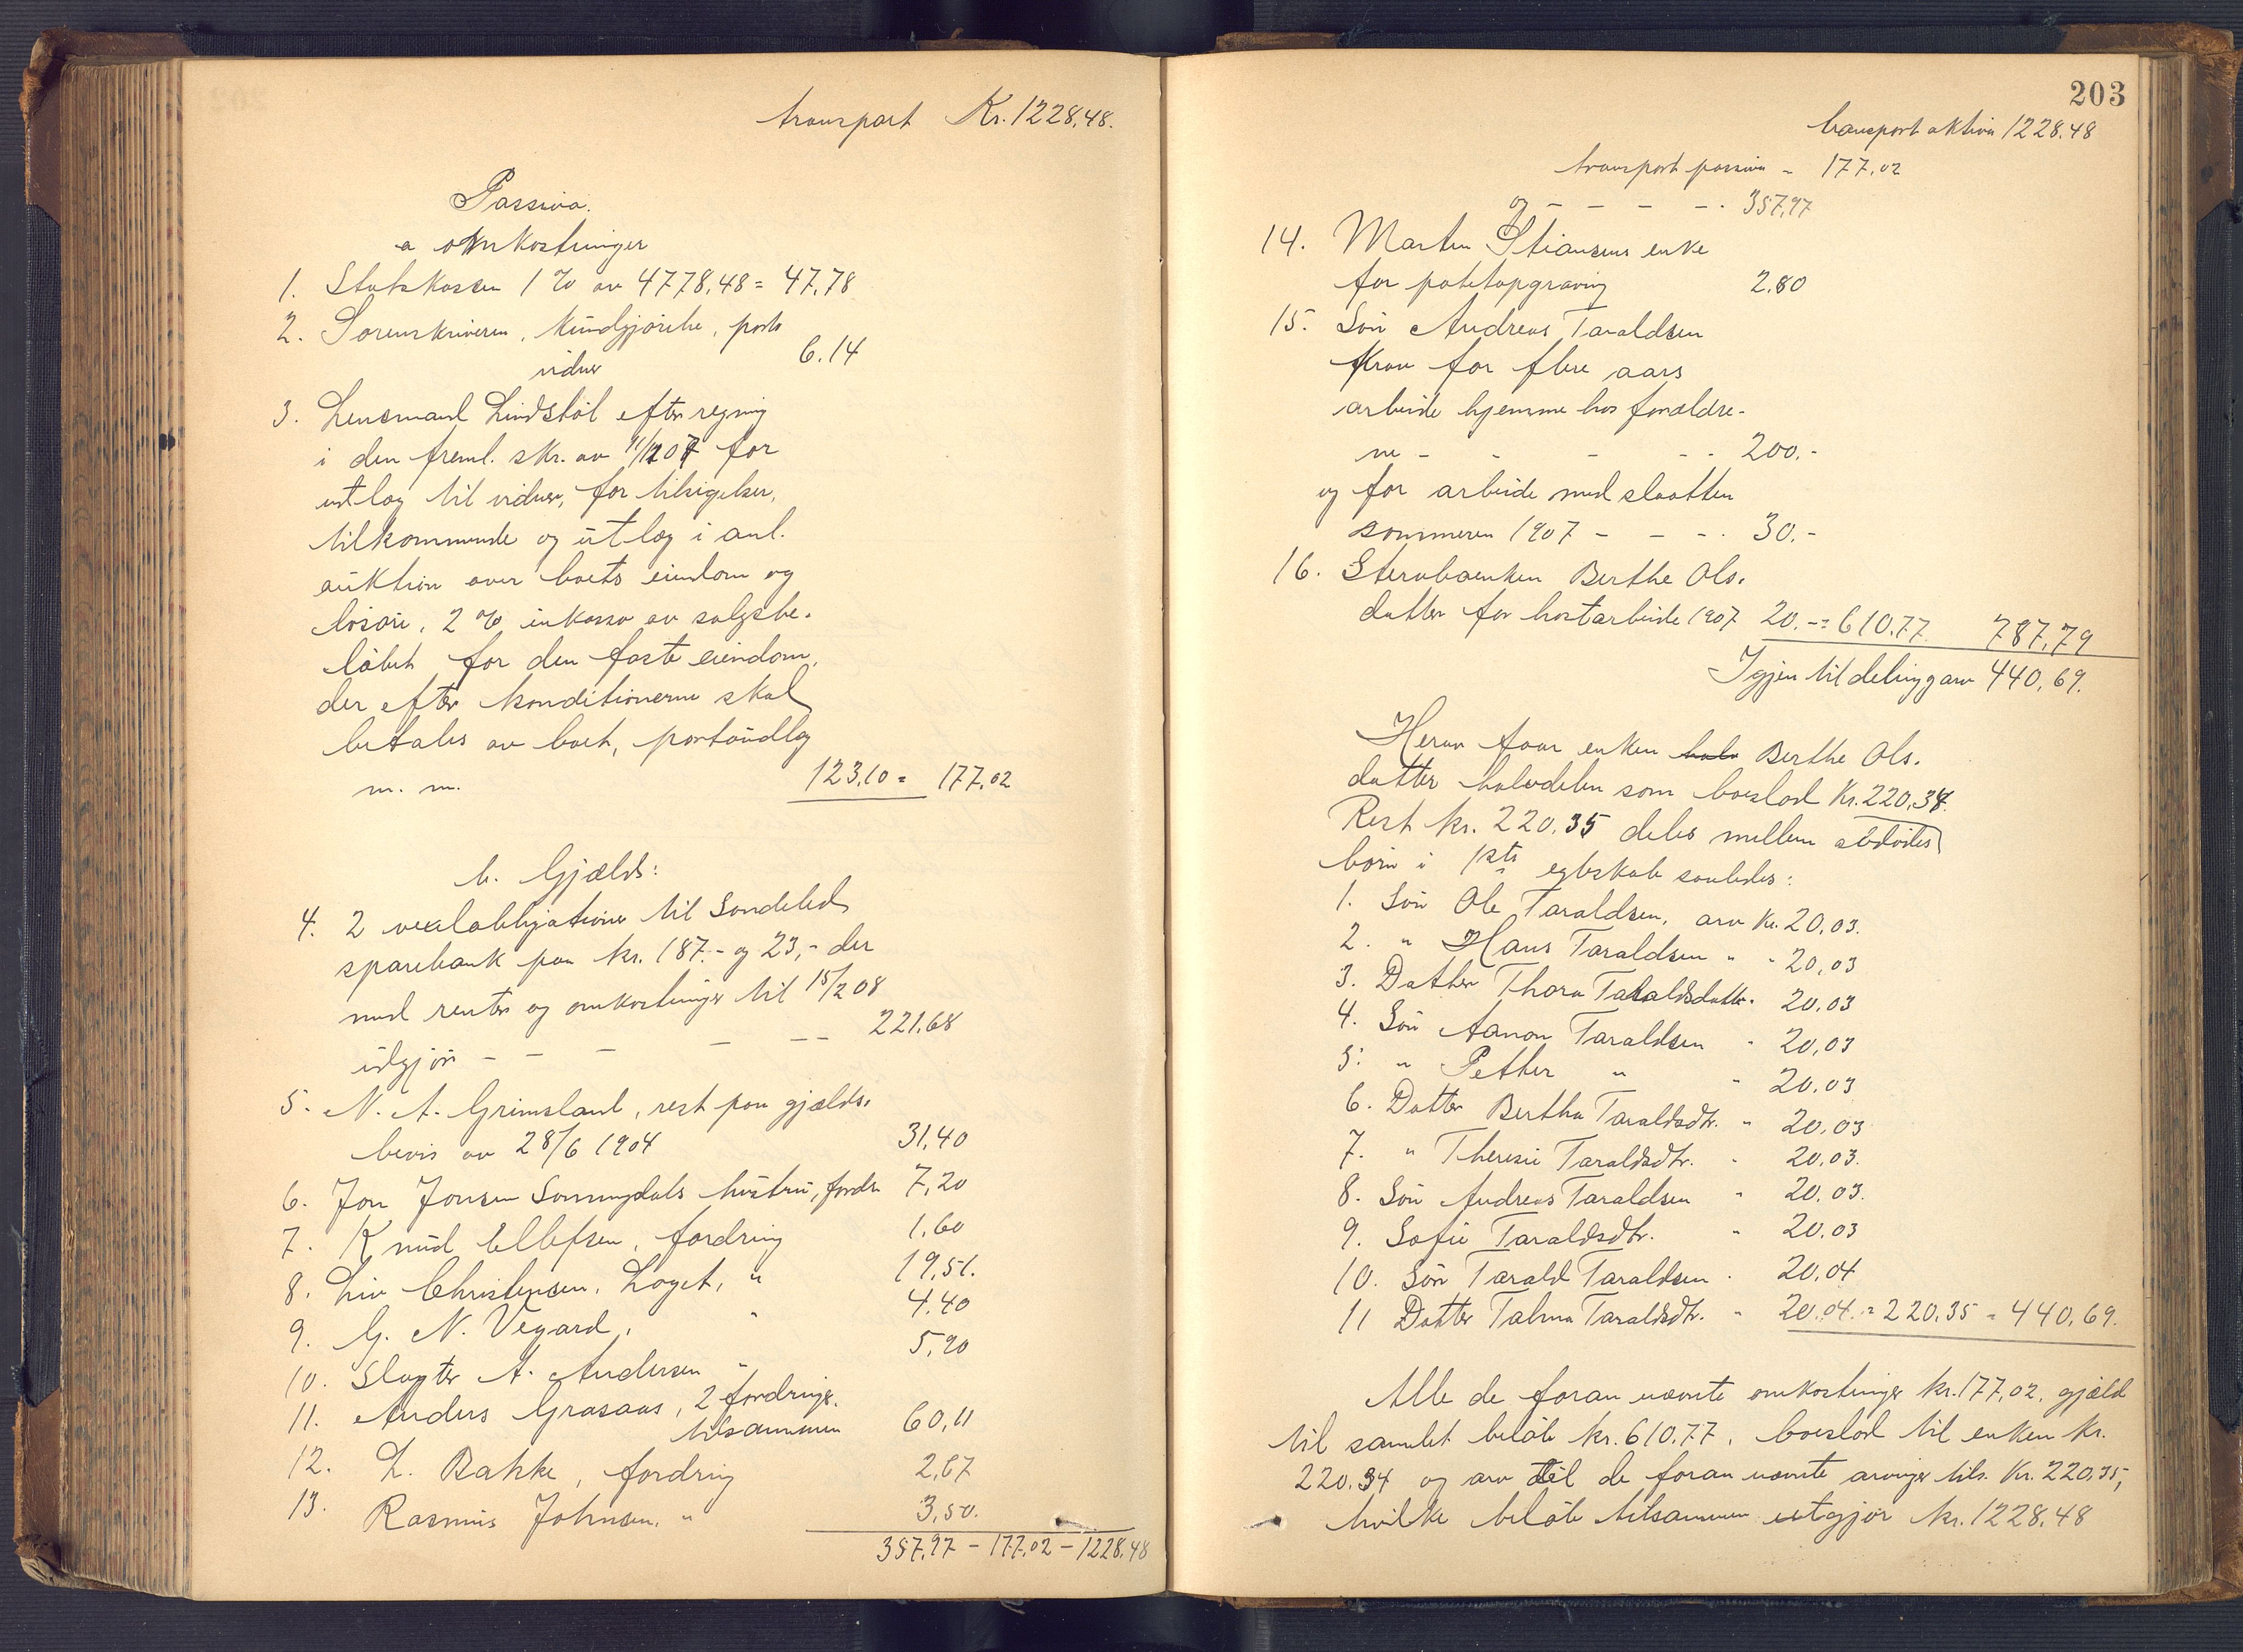 transport Kr. 1228,48.
Passiva.
a omkostninger
1. Statskassen 1 % av 4778,48 = 47,78
2. Sorenskriveren, kundgjörelse, porto
vidner 6.14
3. Lensmand Lindstöl efter regning
i den freml. skr. av 11/12 07 for
utlæg til vidner, for tilsigelser,
tilkommende og utlæg i anl.
auktion over boets eiendom og
lösöre, 2 % inkasso av salgsbe-
löbet for den faste eiendom,
der efter konditionerne skal
betales av boet, portoudlæg
m. m. 123,10 = 177,02
b. Gjæld:
4. 2 vexelobligationer til Söndeled
sparebank paa kr. 187.- og 23,- der
med renter og omkostninger til 15/2 08
udgjör - - - - -- 221,68
5. N. A. Grimsland, rest paa gjælds-
bevis av 28/6 1904 31,40
6. Jon Jonsen Sonningdals hustru, fordr. 7,20
7. Knud Ellefsen, fordring 1,60
8. Liv Christensen, Laget, " 19,51.
9. G. N. Vegard, " 4.40
10. Slagter A. Andersen " 5,90
11. Anders Grasaas, 2 fordringer,
tilsammen 60,11
12. L. Bakke, fordring 2,67
13. Rasmus Johnsen, " 3,50.
357,97 - 177,02 - 1228,48
203
transport aktiva 1228.48
transport passiva - 177,02
og - - - - - 357,97
14. Martin Stiansens enke
for potetopgraving 2.80
15. Sön Andreas Taraldsen
krav for flere aars
arbeide hjemme hos forældre-
ne - - - - - 200.-
og for arbeide med slaatten
sommeren 1907 - - - 30.-
16. Stervboenken Berthe Ols-
datter for höstarbeide 1907 20.- = 610.77 787,79
Igjen til deling arv 440,69.
Herav faar enken halv Berthe Ols-
datter halvdelen som boeslod Kr. 220,34.
Rest kr. 220.35 deles mellem avdödes
börn i 1ste egteskab saaledes:
1. Sön Ole Taraldsen, arv Kr. 20,03.
2. " Hans Taraldsen " " 20,03
3. Datter Thora Taraldsdatter " 20,03
4. Sön Aanon Taraldsen " 20,03
5. " Pether " " 20,03
6. Datter Bertha Taraldsdtr. " 20,03
7. " Theresie Taraldsdtr. " 20,03.
8. Sön Andreas Taraldsen " 20,03.
9. Sofie Taraldsdtr. " 20,03
10. Sön Tarald Taraldsen " 20,04
11 Datter Talma Taraldsdtr. " 20.04. = 220,35 = 440,69.
Alle de foran nævnte omkostninger kr. 177,02, gjæld
til samlet belöb kr. 610.77, boeslod til enken kr.
220.34 og arv til de foran nævnte arvinger tils. Kr. 220,35,
hvilke belöb tilsammen utgjör kr. 1228,48